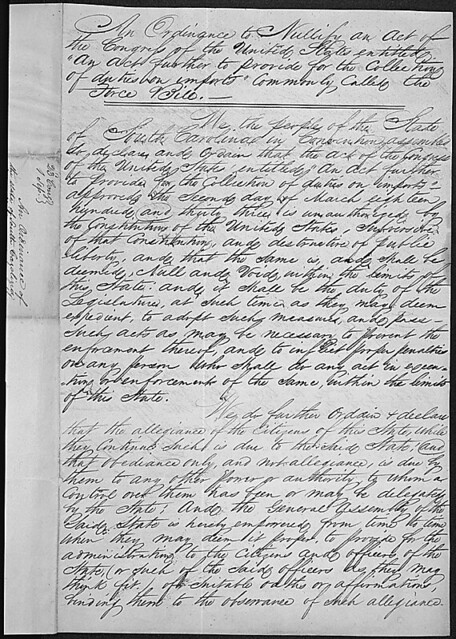 An Ordinance to Nullify an Act of
the Congress of the United States entitled
"An Act further to provide for the Collection
of duties on imports" Commonly Called the
Force Bill.
We, the people of the State
of South Carolina in Convention assembled
do, declare, and Ordain that the act of the Congress
of the United States, entitled, "An Act further
to provide for the Collection of duties on imports"
approved the second day of March eighteen
hundred and thirty three, is unauthorized by
the Constitution of the United States, Subversive
of that Constitution, and destructive of public
liberty, and that the same is, and shall be
deemed, Null and Void, within the limits of
this State: and it shall be the duty of the
Legislature, at such time as they may deem
expedient, to adopt such measures, and pass
such acts as may be necessary to prevent the
enforcement thereof, and to inflict proper penalties
on any person who shall do any act in execu-
tion or enforcement of the same, within the limits
of this State.
We, do further Ordain & declare
that the allegiance of the Citizens of this State, while
they Continue such, is due to the said State, and
that obedience only, and not allegiance, is due by
them to any other power or authority, to whom a
Control over them has been or may be delegated
by the State: And the General Assembly of the
said State is hereby empowered from time to time
when they may deem it proper, to provide for the
administration to the Citizens and officers of the
State, or such of the said officers as they may
think fit, of suitable oaths or affirmations,
binding them to the observance of such allegiance
An Ordinance of
the State of South Carolina